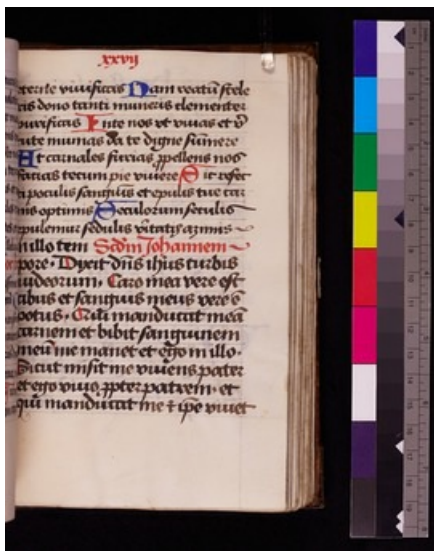 xxvij
eterne vivificas Nam reatu stele
ris dono tanti muneris clementer
purificas In te nos vt vivas et v
tute munias da te digne sumere
Et carnales furias ppellens nos
facias tecum pie vivere Sic refer
ti poculis sanguis et epulis tue car
nis optimis Seculorum seculis
epulemur sedulis vitatis azimis
n illo tem Scdm Johannem
pore. Dixit dns ihus turbis
iudeorum. Caro mea vere est
cibus et sanguis meus vere e
potus. Qui manducat mea
carnem et bibit sanguinem
meu in me manet et ego in illo.
Sicut misit me vivens pater
et ego vivo ppter patrem. et
qui manducat me et ipe vivet